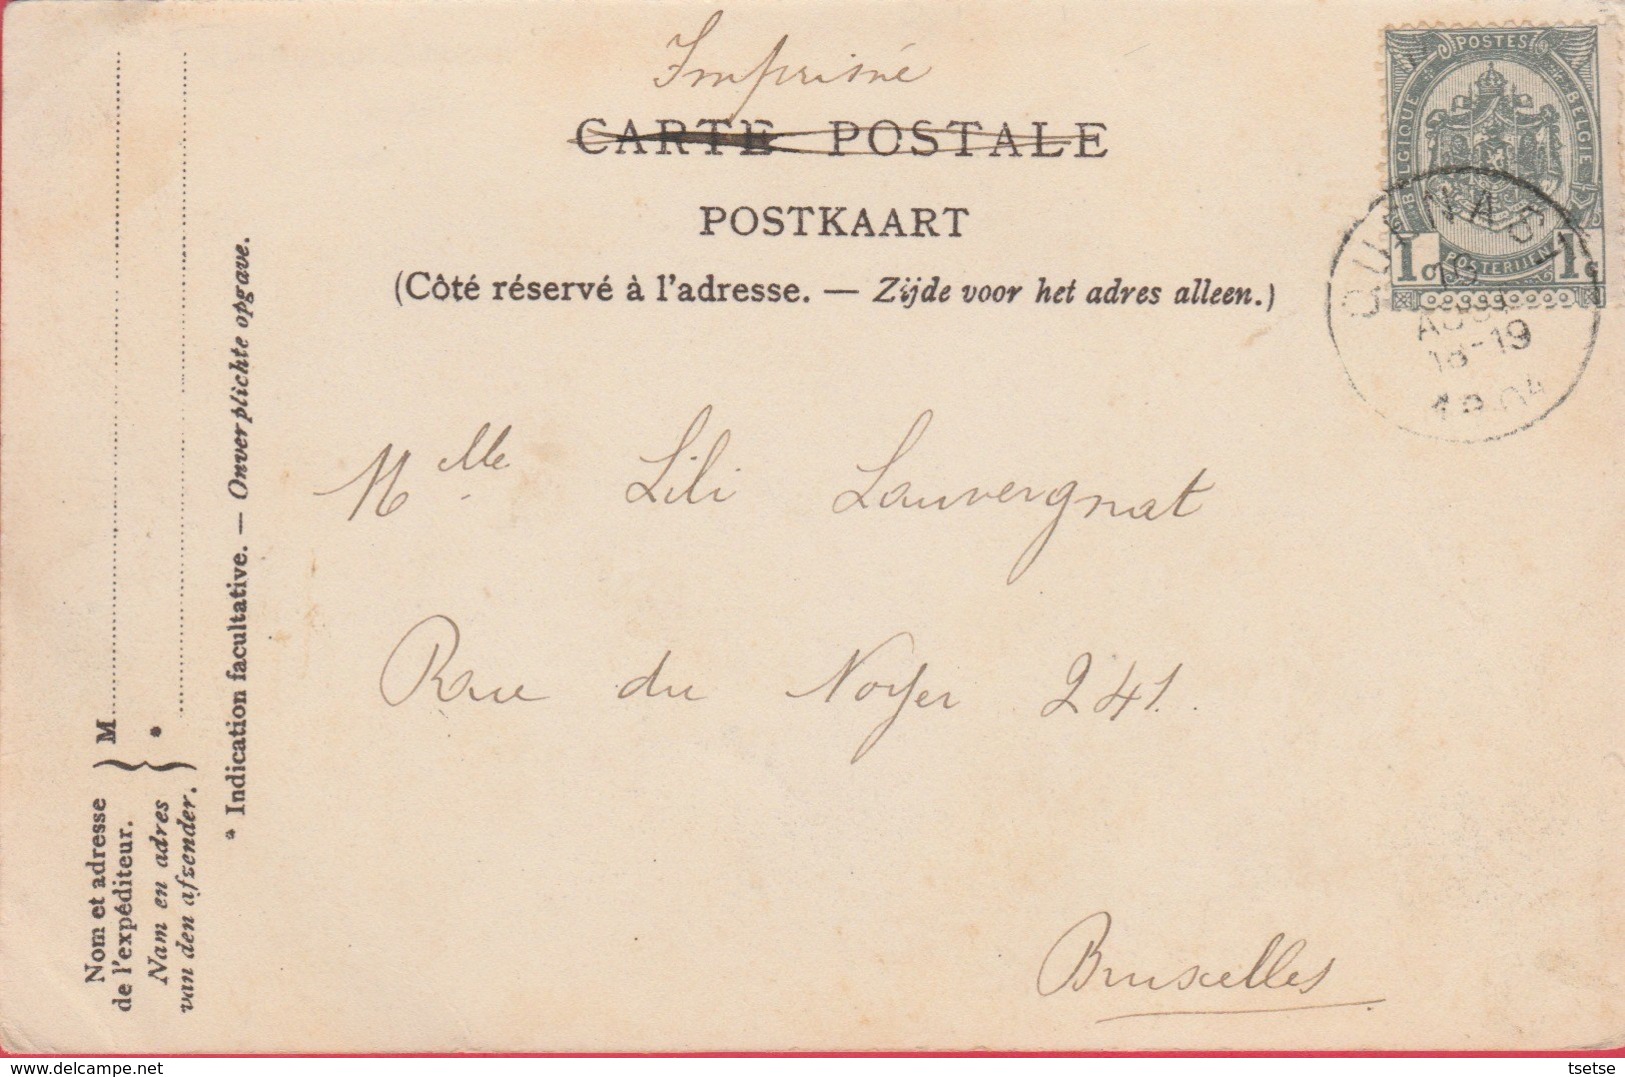 Imprimé
CARTE POSTALE
POSTKAART
(Côté réservé à l'adresse. — Zijde voor het adres alleen.)
POSTES
BELGIQUE BELGIE
POSTERIJEN
1c 1c
QUENAST
AOUT
18-19
1904
Mlle Lili Lauvergnat
Rue du Noyer 241.
Bruxelles
Nom et adresse
de l'expéditeur.
Nam en adres
van den afzender.
M
*
* Indication facultative. — Onverplichte opgave.
delcampe.net
tsetse